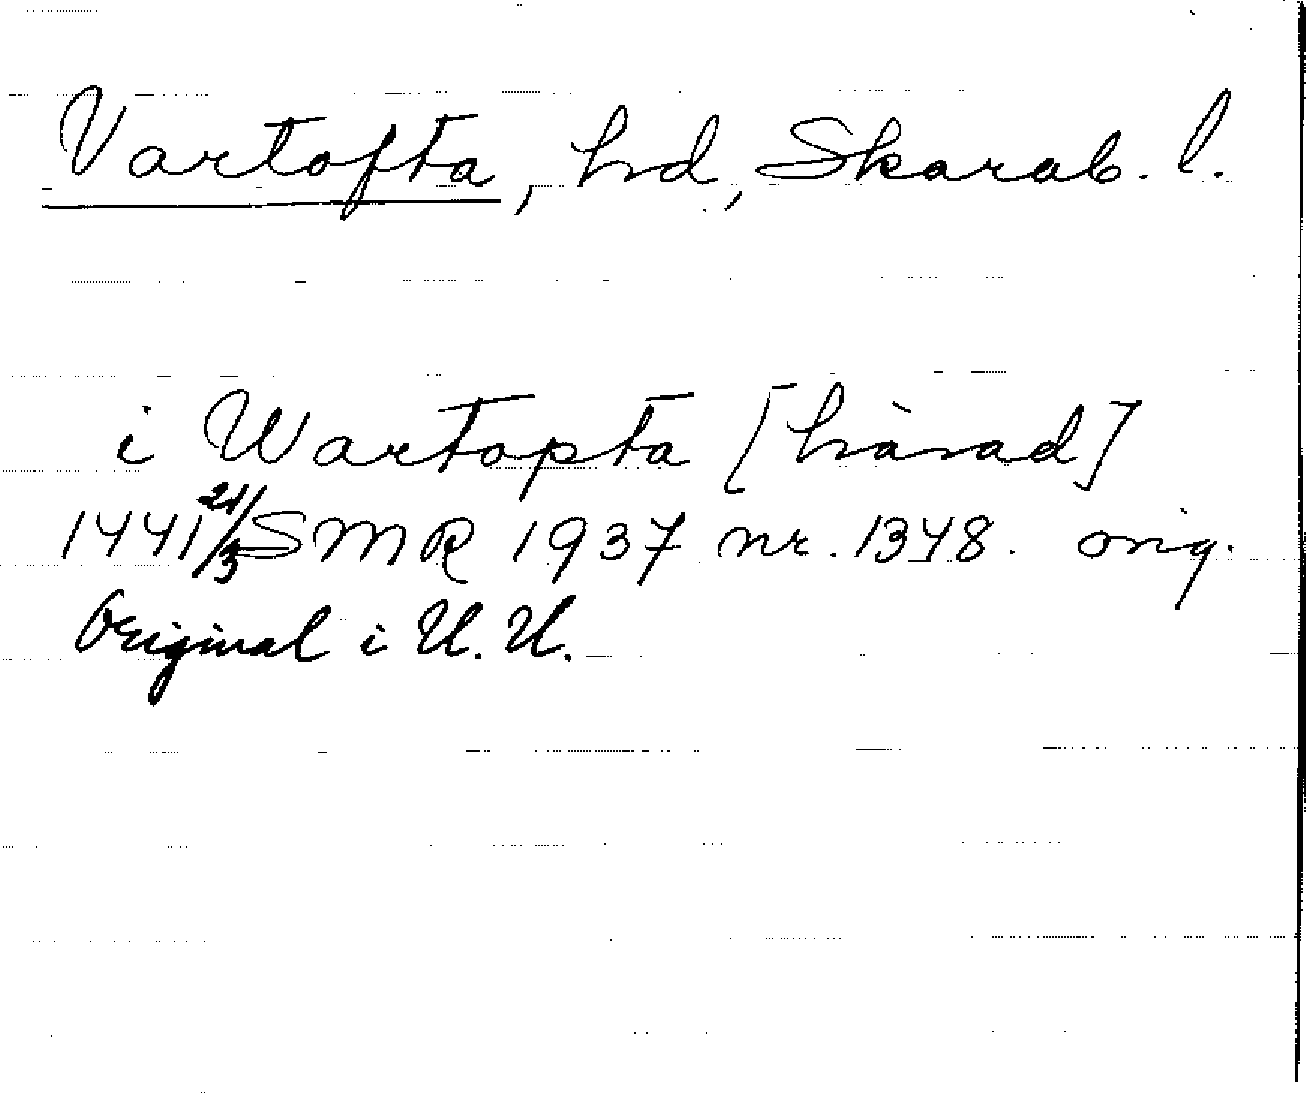 Vartofta, hd, Skarab. l.
i Wartopta [hàrad]
1441 21/3 SMR 1937 nr. 1348. orig.
Original i U. U.